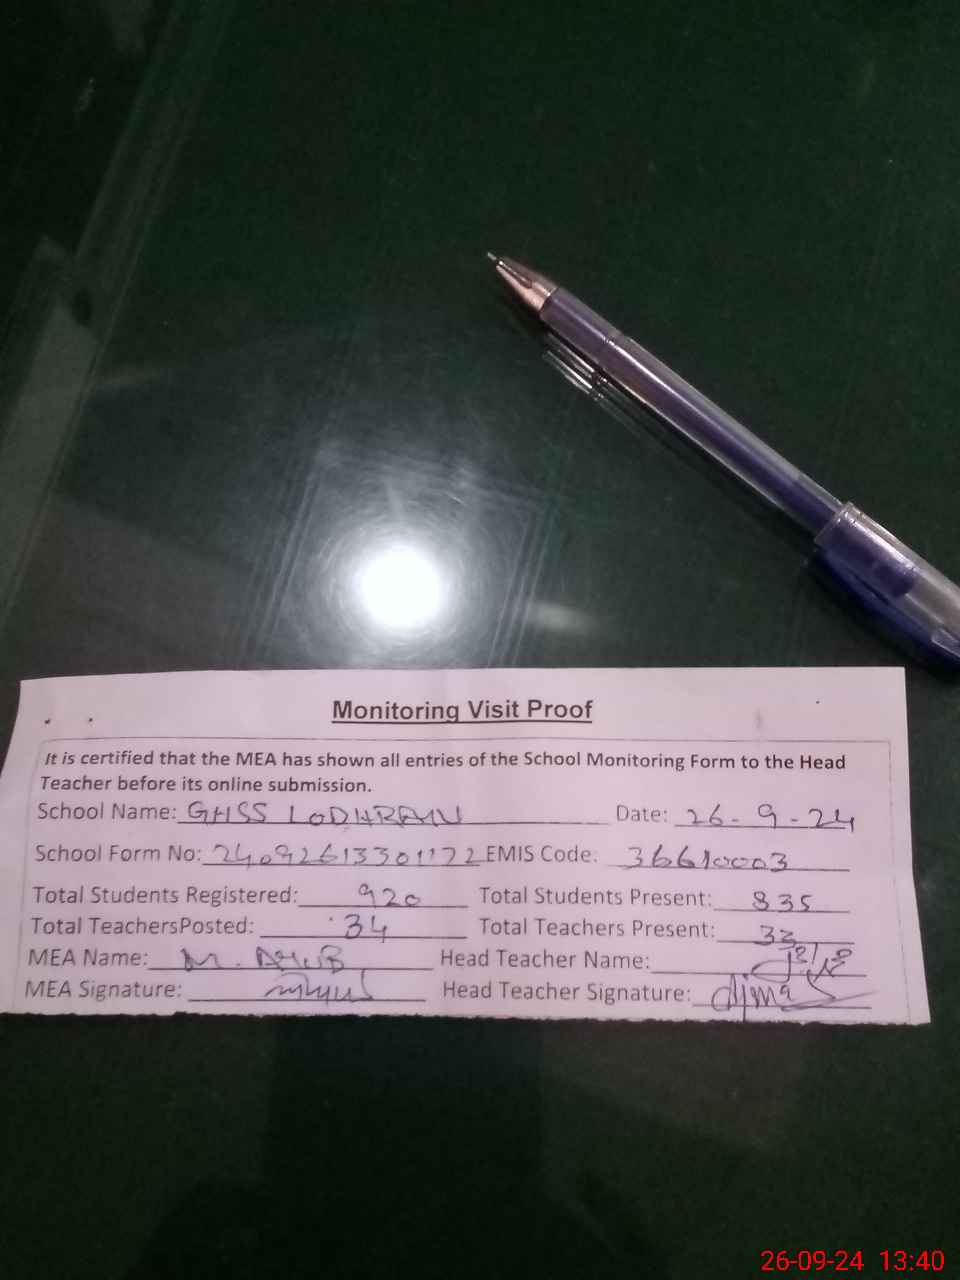 Monitoring Visit Proof
It is certified that the MEA has shown all entries of the School Monitoring Form to the Head
Teacher before its online submission.
School Name: GHSS LODHRAN Date: 26-9-24
School Form No: 24092613301172 EMIS Code: 36610003
Total Students Registered: 920 Total Students Present: 835
Total TeachersPosted: 34 Total Teachers Present: 33
MEA Name: M. AYUB Head Teacher Name:
MEA Signature: Head Teacher Signature:
26-09-24 13:40